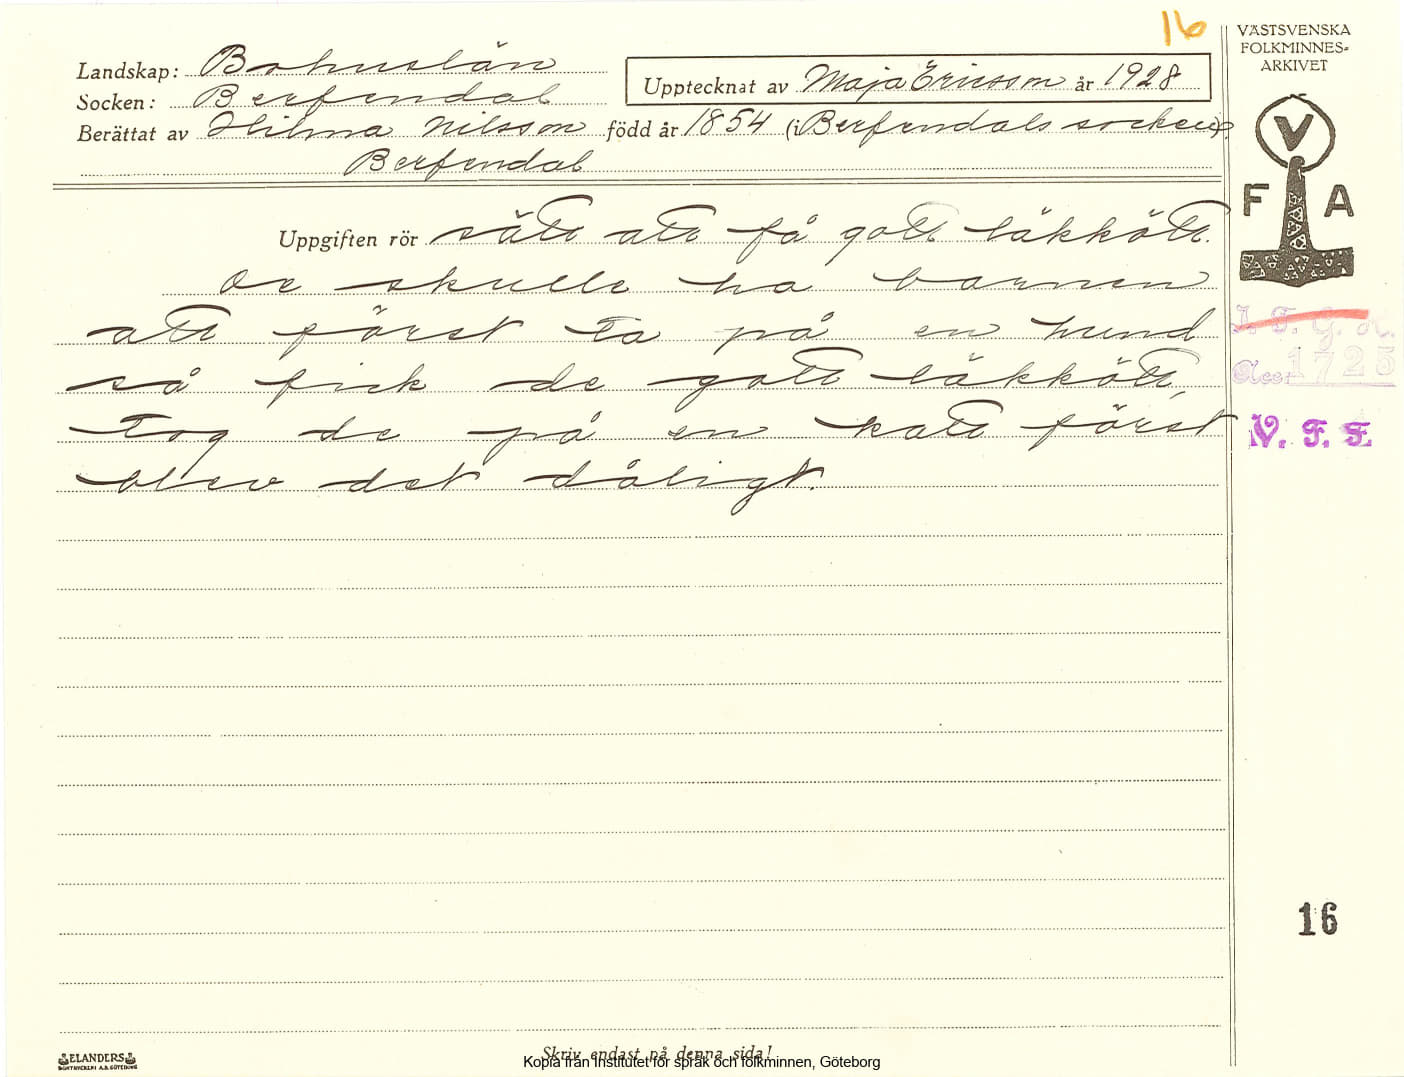 16
VÄSTSVENSKA
FOLKMINNES-
ARKIVET
Landskap: Bohuslän
Upptecknat av Maja Ericsson år 1928
Socken: Berfendal
Berättat av Hilma Nilsson född år 1854 (i Berfendals socken).
Berfendal
V
F A
Uppgiften rör sätt att få gott läkkött.
De skulle ha barnen
att först ta på en hund
så fick de gott läkkött
tog de på en katt först
blev det dåligt.
I. F. G. H.
Acc. 1725
V. F. F.
16
ELANDERS
BOKTRYCKERI A.B. GÖTEBORG
Skriv endast på denna sida!
Kopia från Institutet för språk och folkminnen, Göteborg